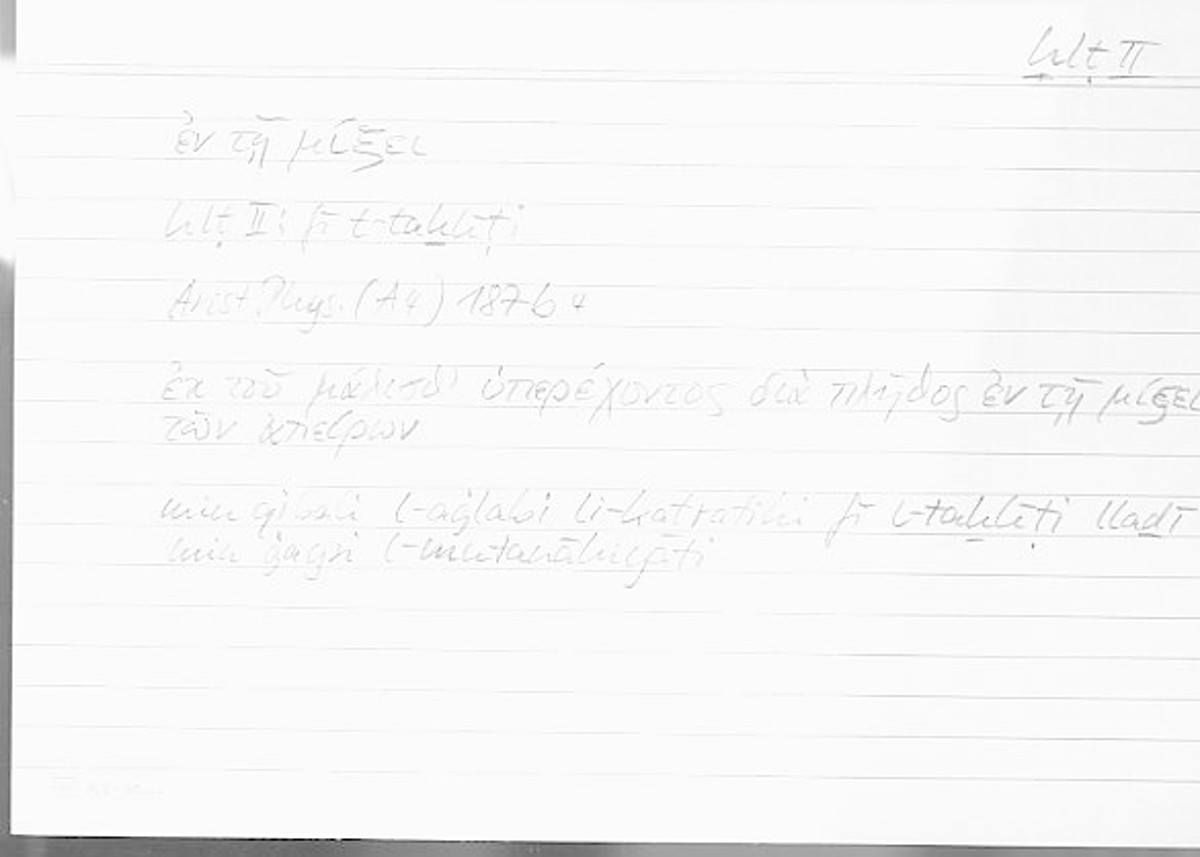 ḫlṭ II
ἐν τῇ μίξει
ḫlṭ II: fī t-taḫlīṭi
Arist. Phys. (A4) 187b4
ἐκ τοῦ μάλισθ' ὑπερέχοντος διὰ πλῆθος ἐν τῇ μίξει
τῶν ἀπείρων
min qibali l-aġlabi li-kaṯratihi fī t-taḫlīṭi llaḏī
min ġayri l-mutanāhiyāti